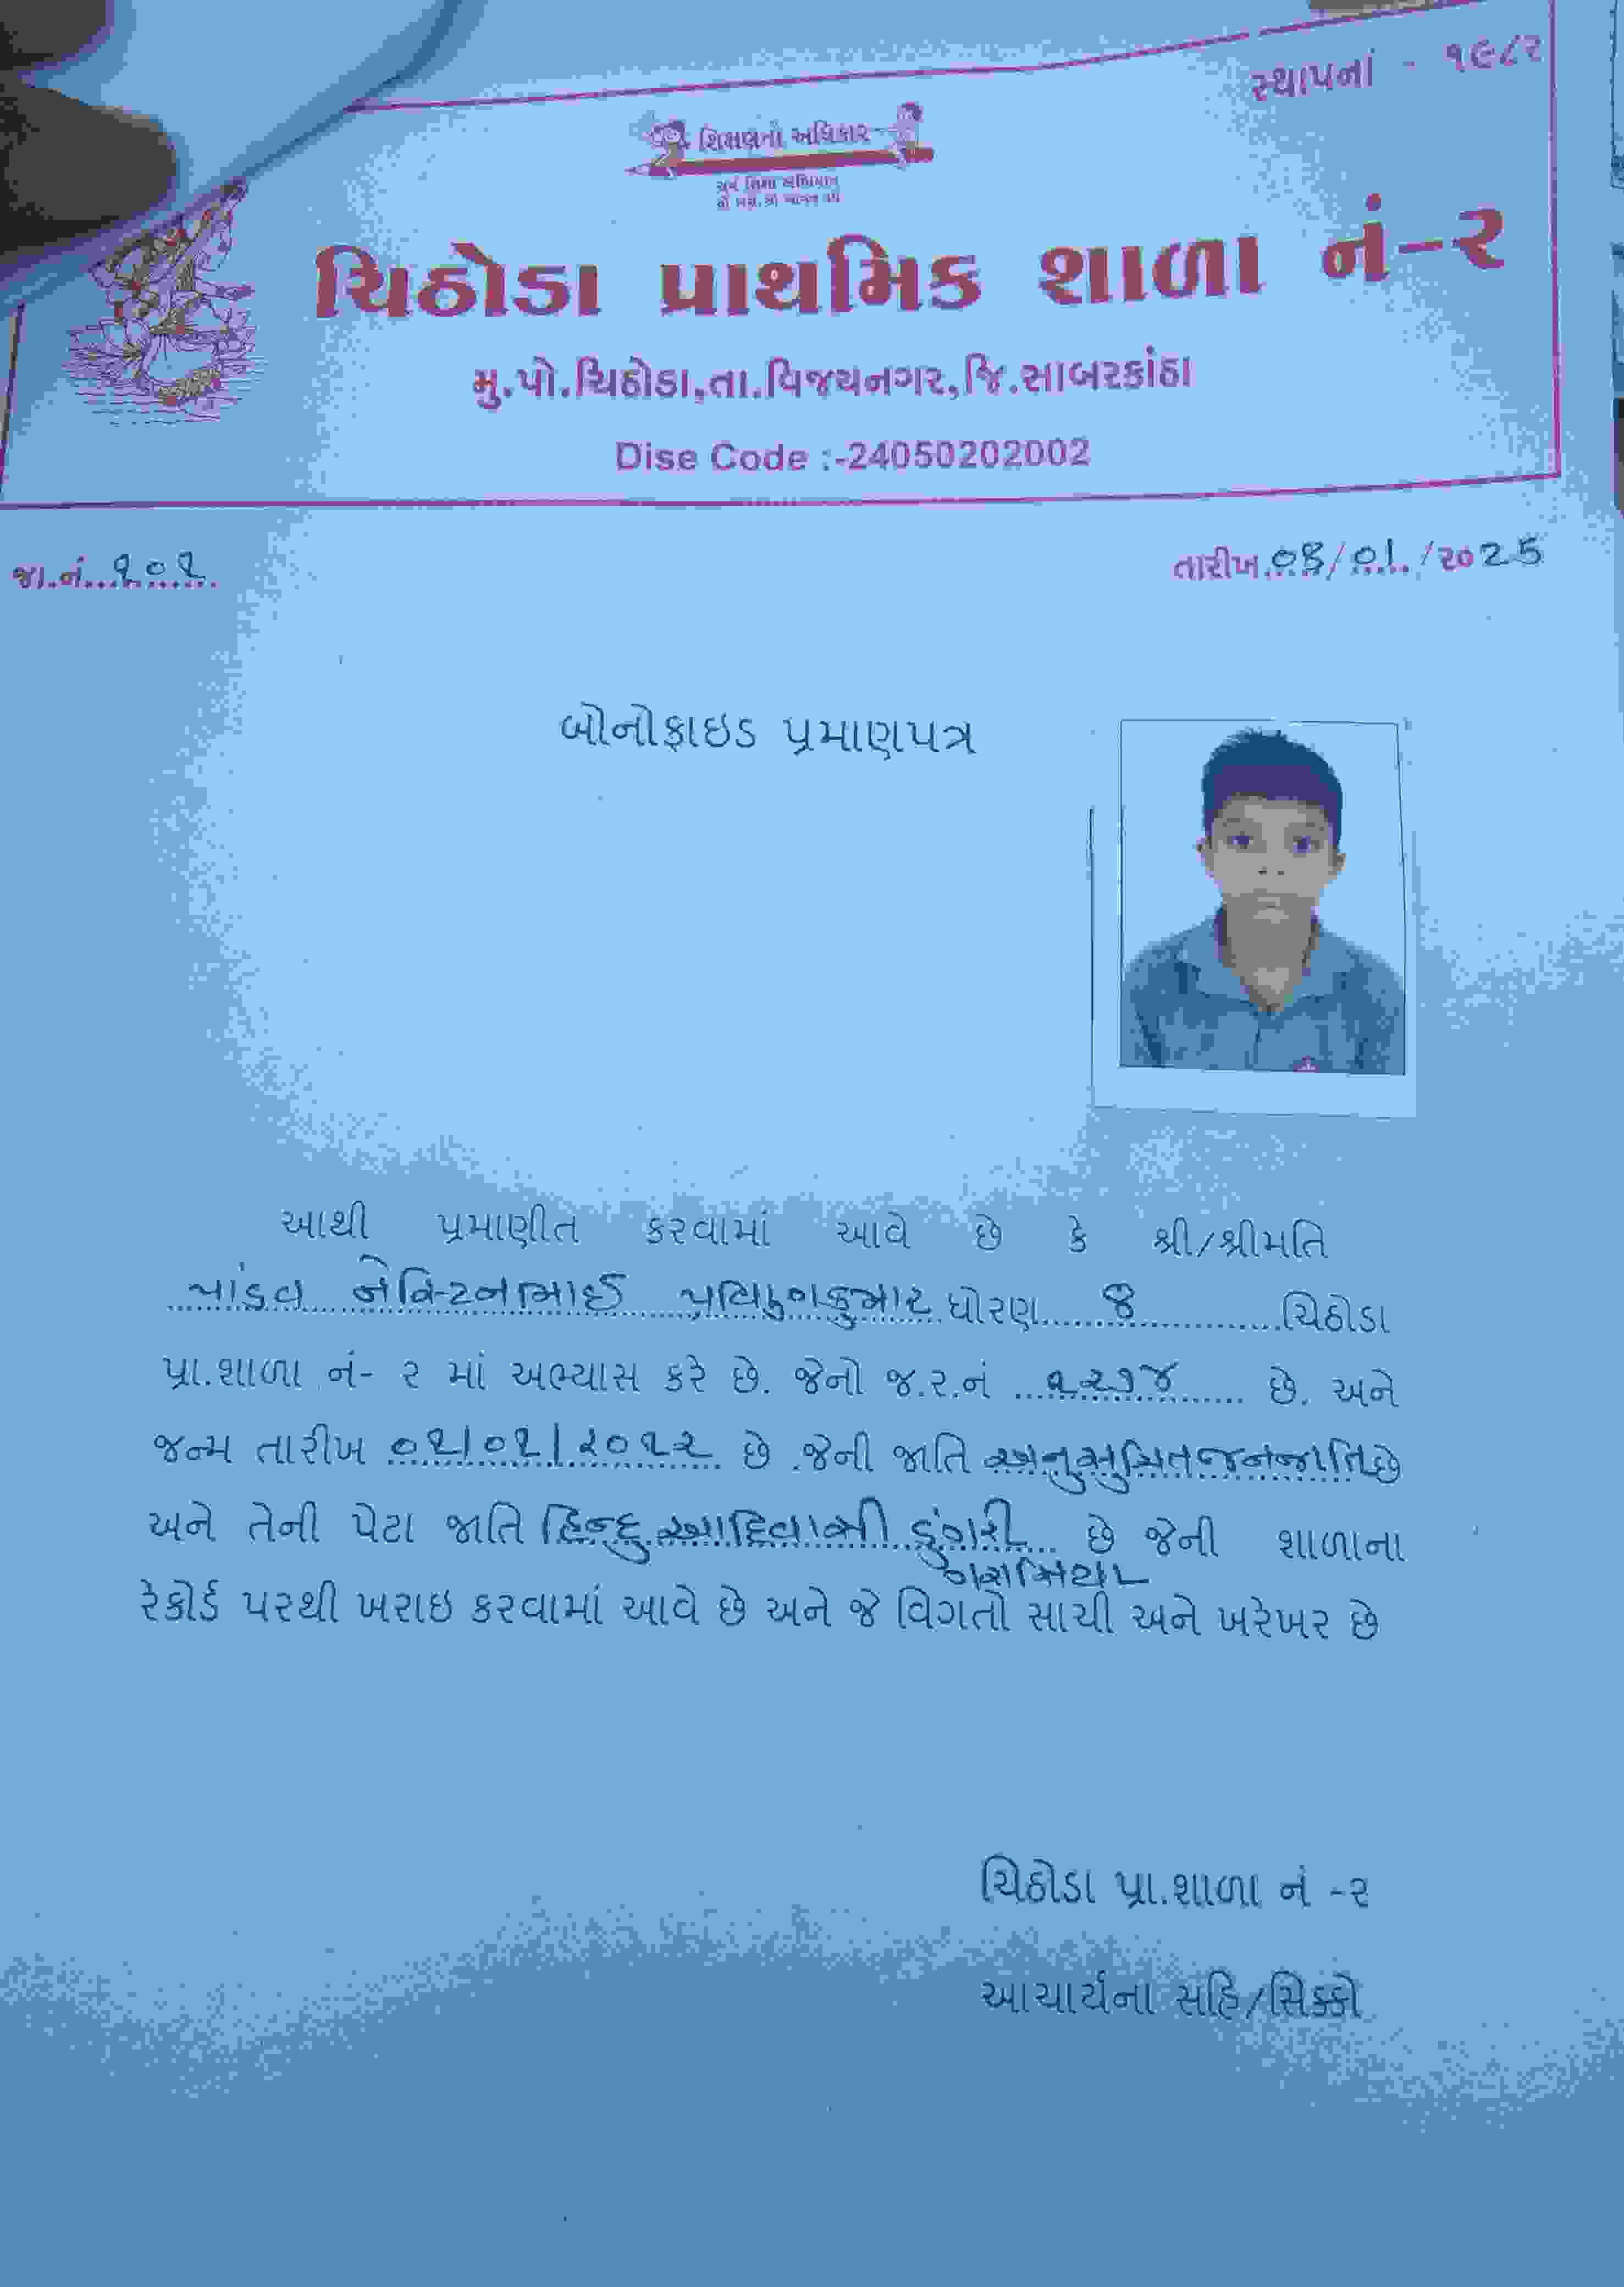 સ્થાપના - ૧૯૮૨
શિક્ષણનો અધિકાર
સર્વ શિક્ષા અભિયાન
ચિઠોડા પ્રાથમિક શાળા નં-૨
મુ.પો.ચિઠોડા,તા.વિજયનગર,જિ.સાબરકાંઠા
Dise Code :-24050202002
જા.નં...૧૦૧...... તારીખ.../01./૨૦25
બોનોફાઇડ પ્રમાણપત્ર
આથી પ્રમાણીત કરવામાં આવે છે કે શ્રી/શ્રીમતિ
પાંડવ પ્રવિણકુમાર ધોરણ............ચિઠોડા
પ્રા.શાળા નં- ૨ માં અભ્યાસ કરે છે. જેનો જ.ર.નં ............ છે. અને
જન્મ તારીખ ૦૧/૦૧/૨૦૧૨ છે .જેની જાતિ અનુસુચિતજનજાતિ છે
અને તેની પેટા જાતિ હિન્દુ આદિવાસી ડુંગરી છે જેની શાળાના
ગરાસિયા
રેકોર્ડ પરથી ખરાઇ કરવામાં આવે છે અને જે વિગતો સાચી અને ખરેખર છે
ચિઠોડા પ્રા.શાળા નં -૨
આચાર્યના સહિ/સિક્કો